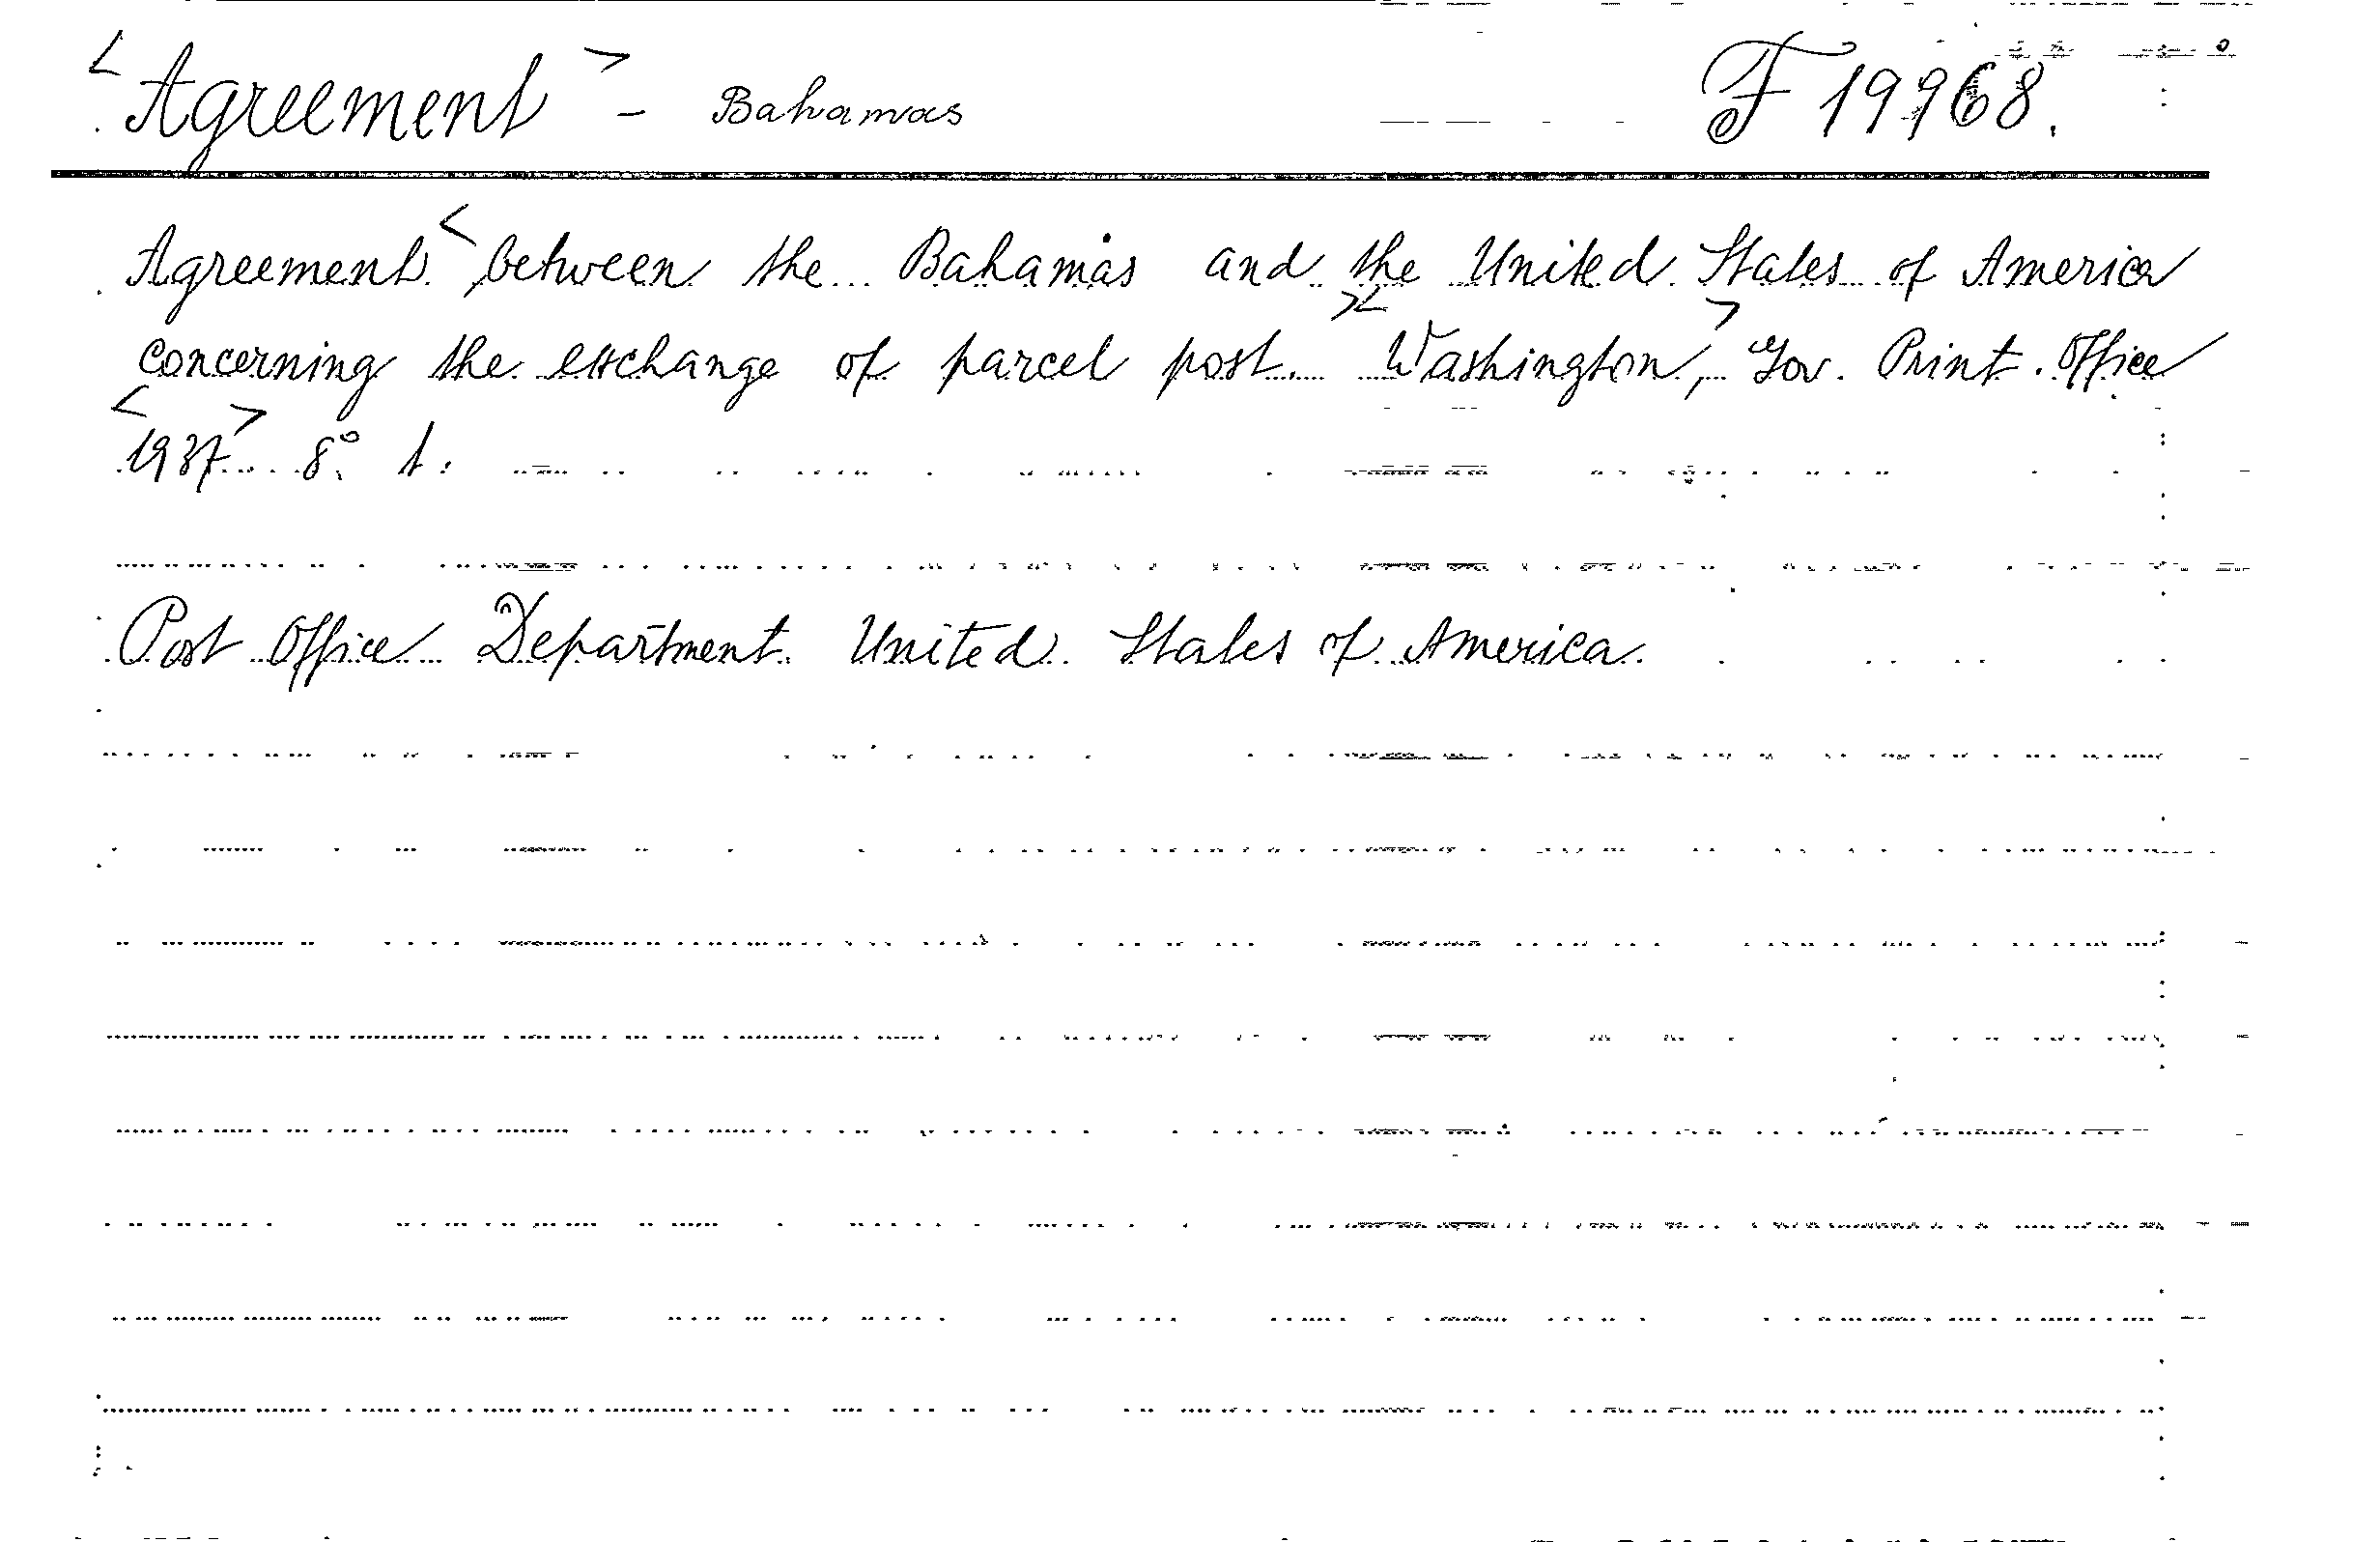 <Agreement> - Bahamas F 19968.
Agreement <between the Bahamas and the United States of America
concerning the exchange of parcel post.> <Washington,> Gov. Print. Office
<1937> 8° 1.
Post Office Department. United States of America.